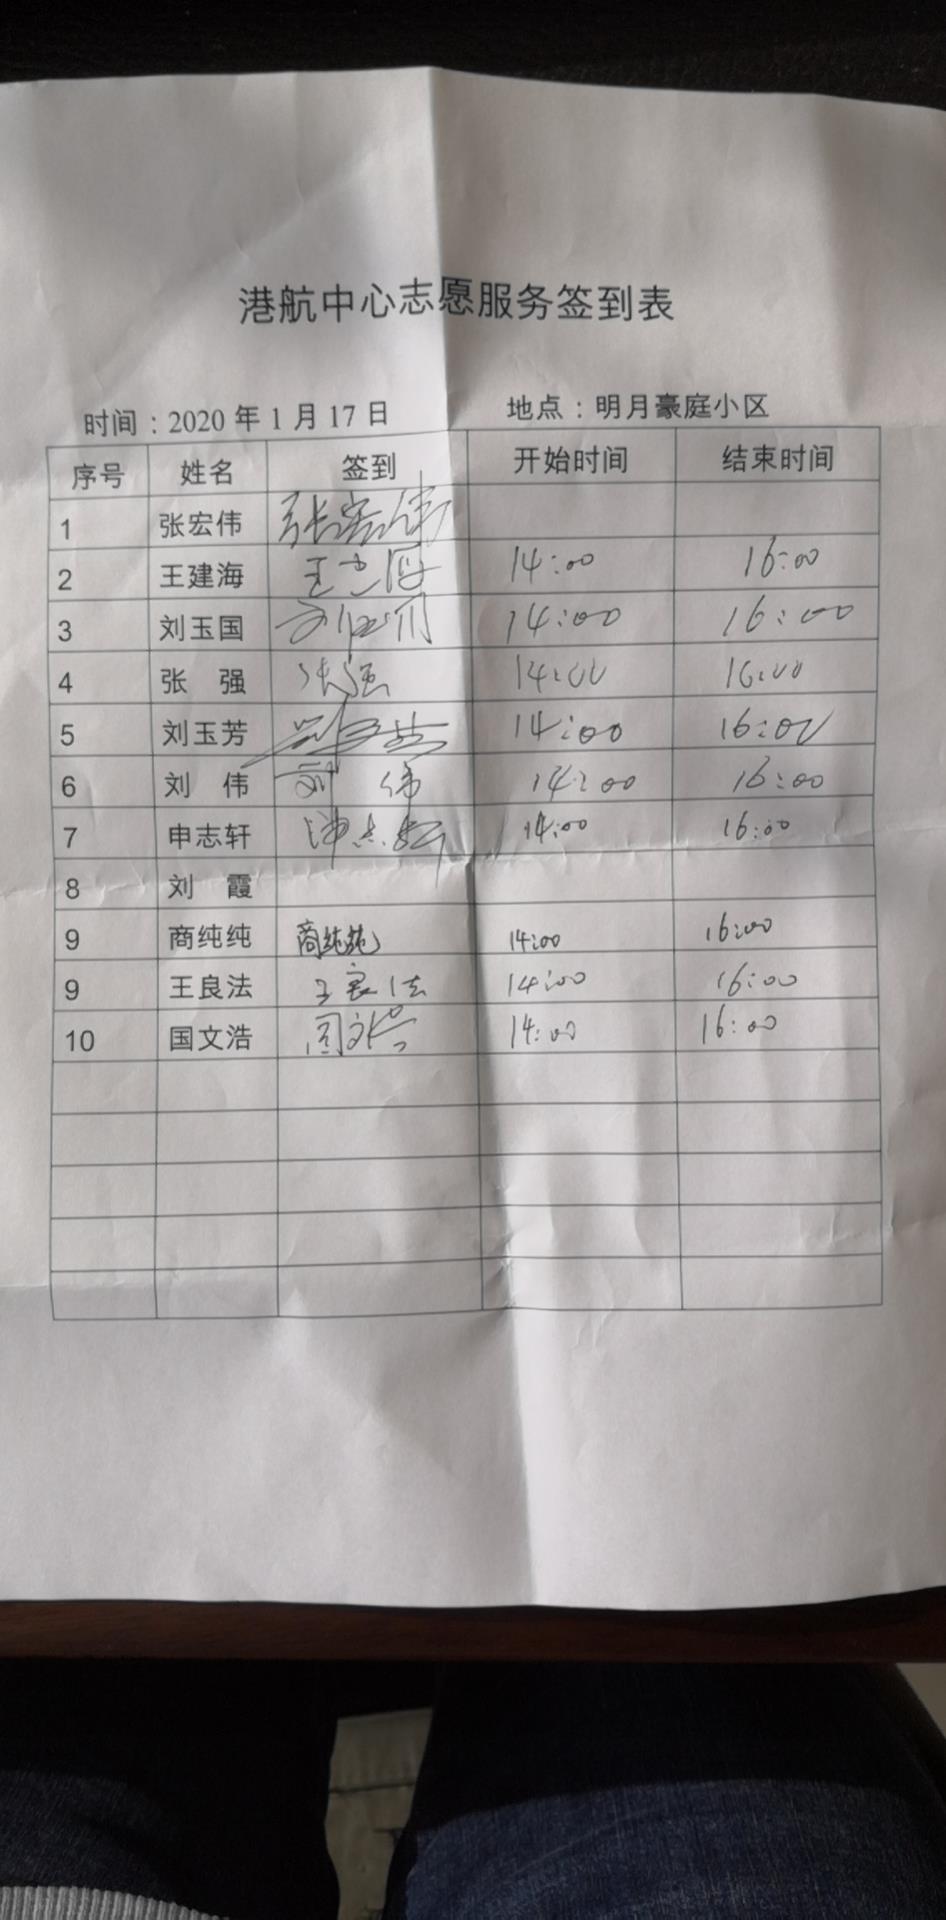 港航中心志愿服务签到表
时间：2020 年 1 月 17 日 地点：明月豪庭小区
序号 姓名 签到 开始时间 结束时间
1 张宏伟 张宏伟
2 王建海 王建海 14:00 16:00
3 刘玉国 14:00 16:00
4 张 强 张强 14:00 16:00
5 刘玉芳 14:00 16:00
6 刘 伟 刘 伟 14:00 16:00
7 申志轩 申志轩 14:00 16:00
8 刘 霞
9 商纯纯 商纯纯 14:00 16:00
9 王良法 王良法 14:00 16:00
10 国文浩 国文浩 14:00 16:00